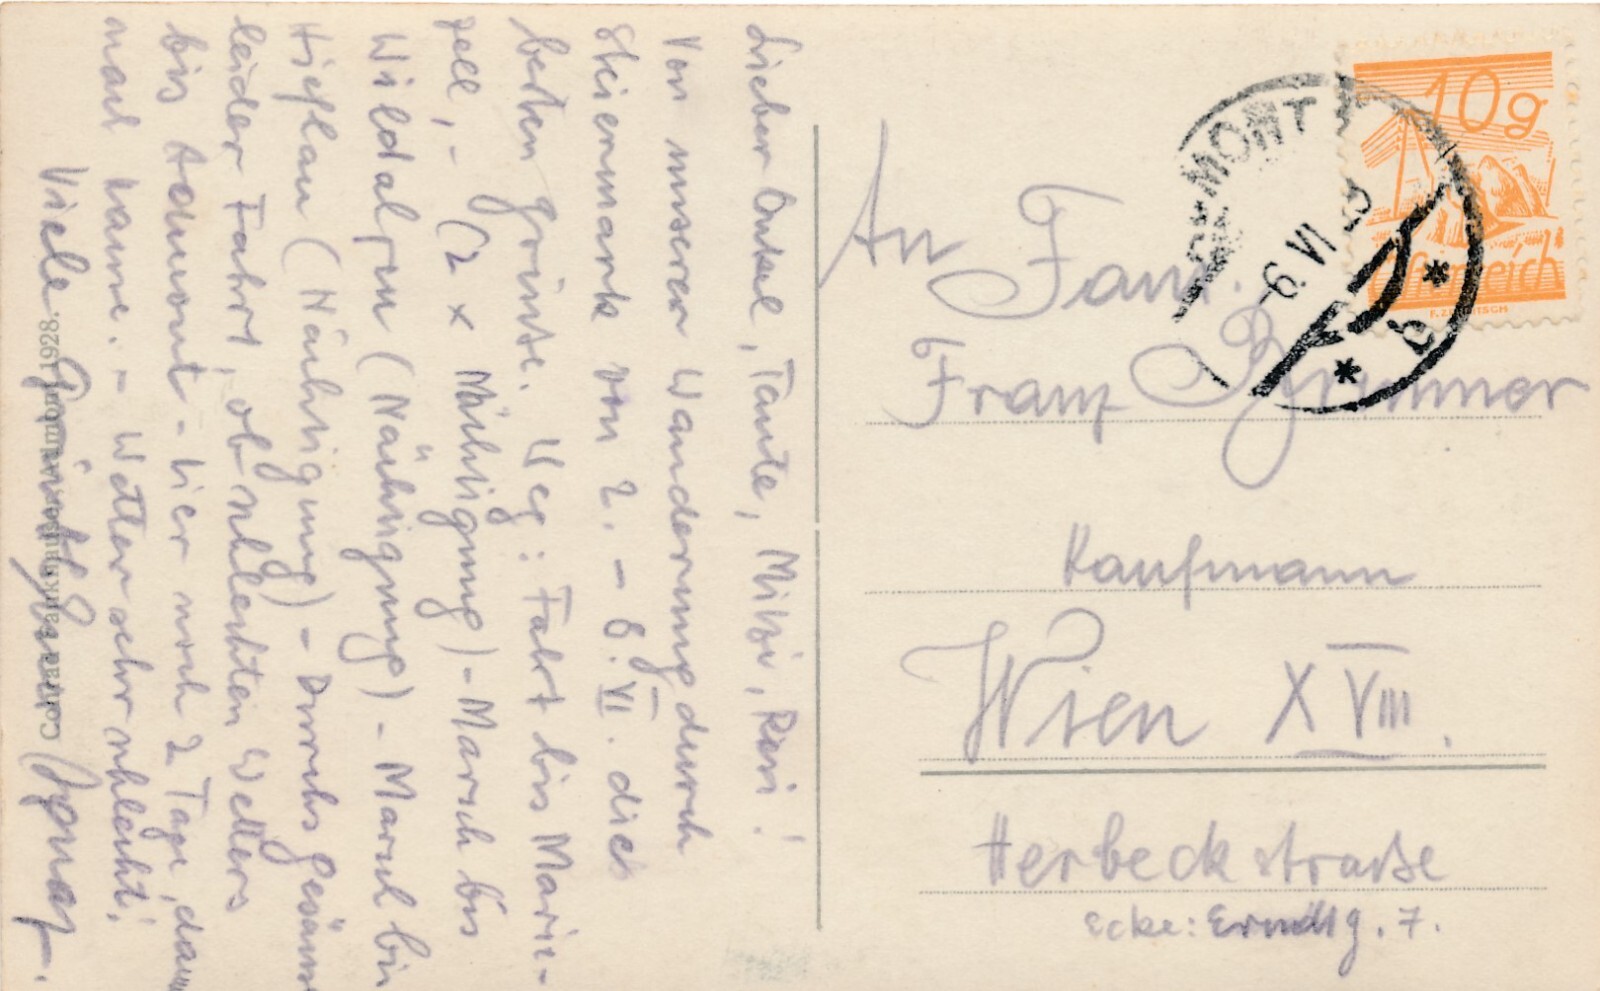 Lieber Onkel, Tante, Mitzi, Resi!
Von unserer Wanderung durch
Steiermark von 2. – 6. VI. die
besten Grüsse. Weg: Fahrt bis Marie-
zell, – (2 x Nächtigung) – Marsch bis
Wildalpen (Nächtigung) – Marsch bis
Hieflau (Nächtigung) – Durchs Gesäuse
leider Fahrt, ob schlechten Wetters
bis Admont – hier noch 2 Tage, dann
nach Hause. – Wetter sehr schlecht!
Viele Grüße
1928.
An Fam.
Franz Brunner
Kaufmann
Wien XVIII.
Herbeckstraße
Ecke: Erndtg. 7.
10g
Österreich
ADMONT
9 VI